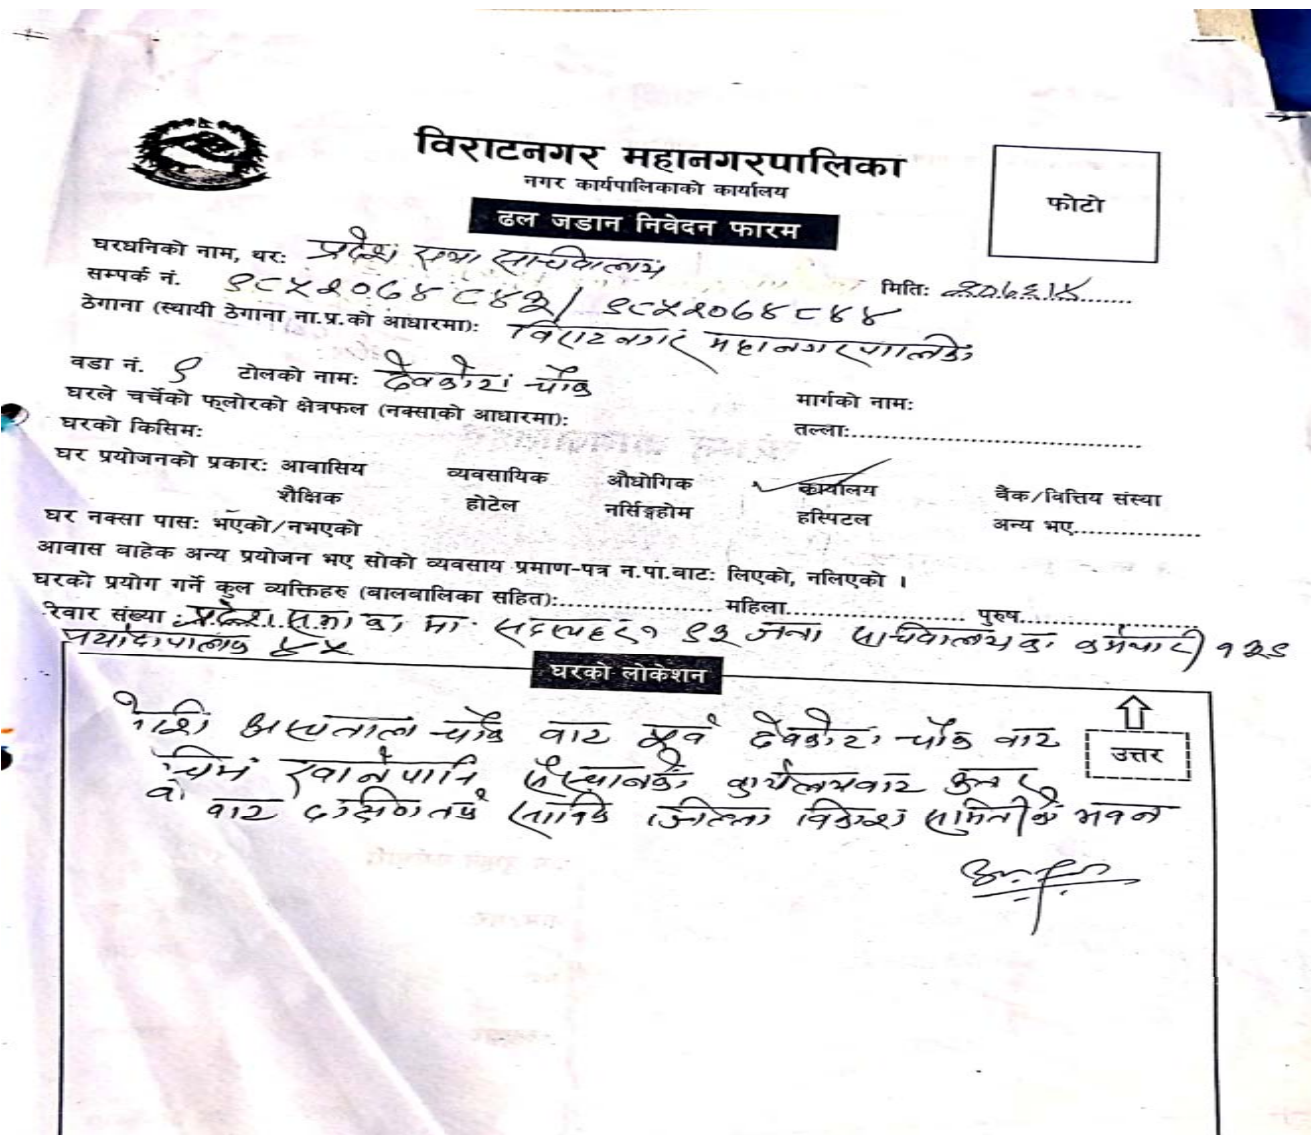 विराटनगर महानगरपालिका
नगर कार्यपालिकाको कार्यालय
ढल जडान निवेदन फारम
फोटो
घरधनिको नाम, थरः प्रदेश सभा सचिवालय
मितिः
सम्पर्क नं. ९८५२०६४८४३/ ९८५२०६४८४४
ठेगाना (स्थायी ठेगाना ना.प्र.को आधारमा): विराटनगर महानगरपालिका
वडा नं. ९ टोलको नामः देवकोटा चौक मार्गको नामः
घरले चर्चेको फ्लोरको क्षेत्रफल (नक्साको आधारमा): तल्लाः
घरको किसिमः
घर प्रयोजनको प्रकारः आवासिय व्यवसायिक औधोगिक कार्यालय बैंक/वित्तिय संस्था
शैक्षिक होटेल नर्सिङ्गहोम हस्पिटल अन्य भए
घर नक्सा पासः भएको/नभएको
आवास बाहेक अन्य प्रयोजन भए सोको व्यवसाय प्रमाण-पत्र न.पा.वाटः लिएको, नलिएको ।
घरको प्रयोग गर्ने कुल व्यक्तिहरु (बालबालिका सहित): महिला पुरुष
रवार संख्या : प्रदेश सभा का मा. ९३ जना सचिवालयका कर्मचारी
घरको लोकेशन
उत्तर
कोशि अस्पताल चौक वाट पूर्व देवकोटा चौक वाट
खानेपानि कार्यलयवाट
वाट दक्षिण तर्फ साविक जिल्ला विकाश समितीको भवन